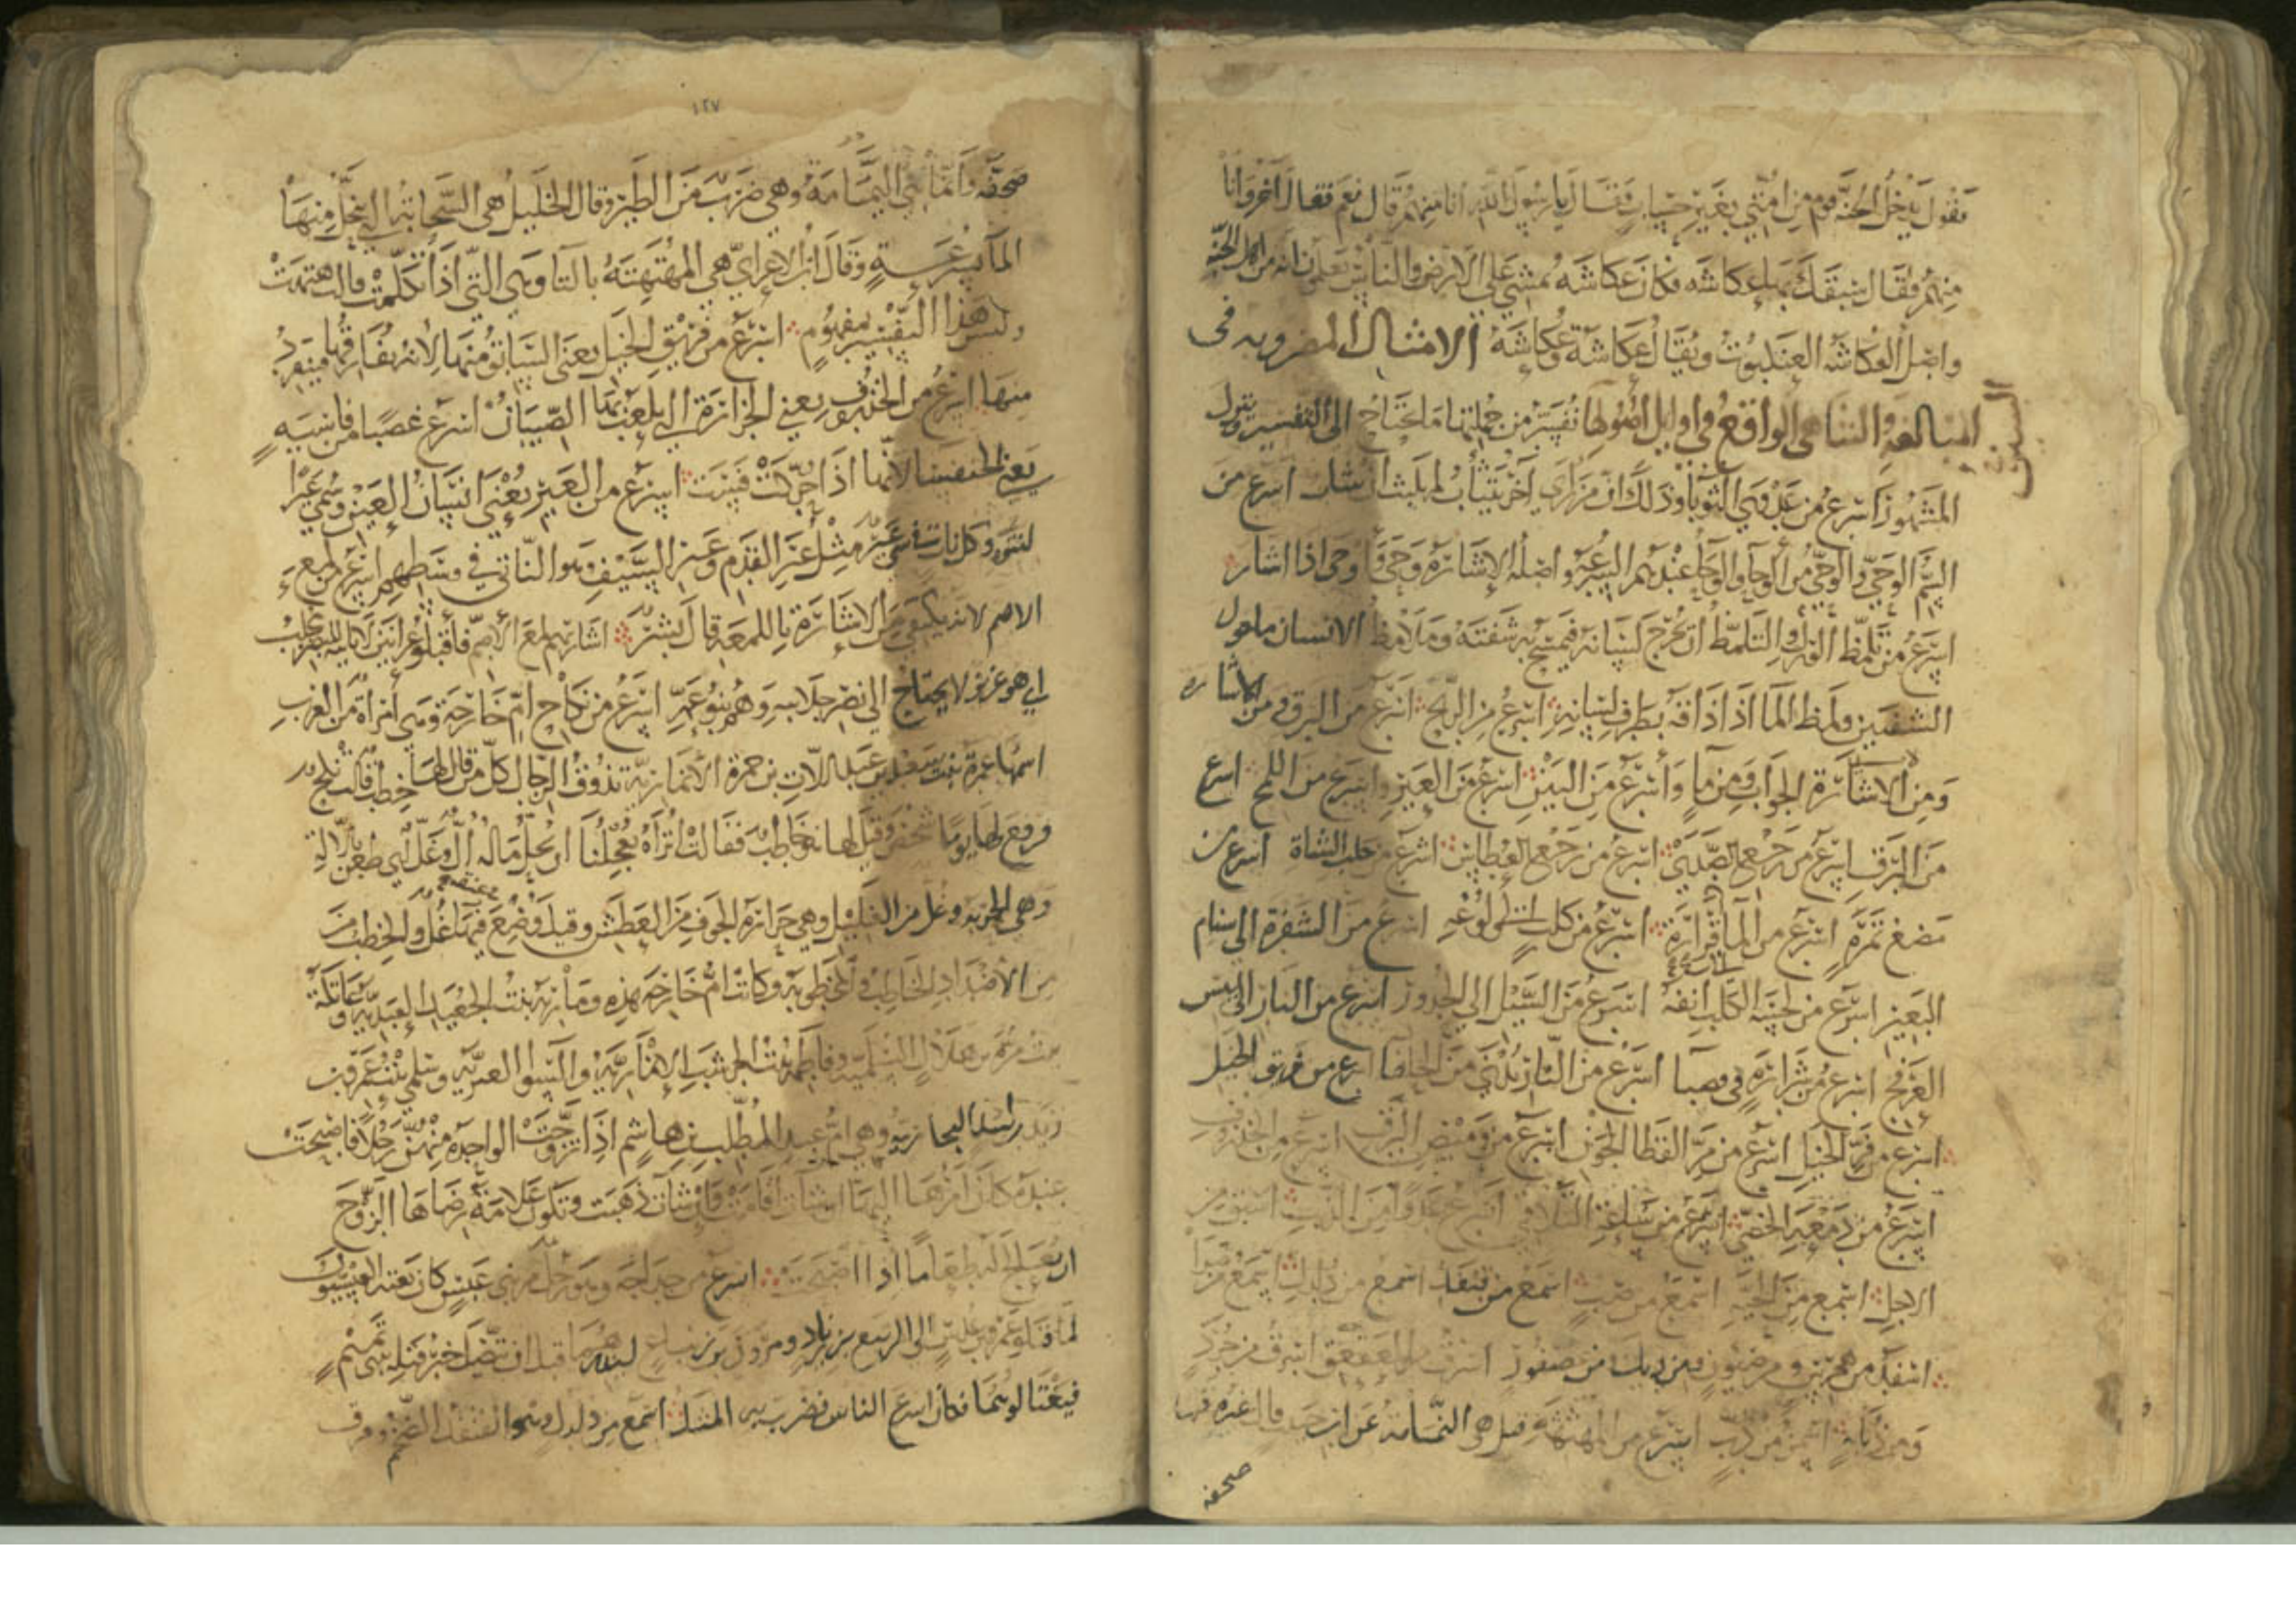 يقول يدخل الجنة قوم من امتي بغير حساب فقال يا رسول الله انا منهم قال نعم فقال اخر وانا
منهم فقال سبقك بها عكاشه فكان عكاشه يمشي على الارض والناس يعلمون انه من اهل الجنه
واصل العكاشه العنكبوت ويقال عكاشة وعكاشة الامثال المضروبه فى
المبالغه والتناهى الواقع في اوايل اصولها السين
نفسر من جملتها ما يحتاج الى التفسير ونقول
المشهور اسرع من عدوى الثوبا وذلك ان من راي اخر يتثاب لم يلبث ان يثاب اسرع من
السم الوحي والوحي من الوحا والوحا عندهم السرعه واصله الاشارة وحى واوحى اذا اشار
اسرع من تلمظ الورل والتلمظ ان تخرج لسانه فيمسح به شفته وما لامظ الانسان ما حول
الشفتين ولمظ الما اذا ذاقه بطرف لسانه اسرع من الريح اسرع من البرق ومن الاشاره
ومن الاشارة الجواب ومن ما واسرع من البين اسرع من العير واسرع من اللمح اسرع
من البرق اسرع من رجع الصدى اسرع من رجع العطاس اسرع من حلب الشاة اسرع من
مضغ تمرة اسرع من الما الى قراره اسرع من كلب الى ولوغه اسرع من الشفرة الى سنام
البعير اسرع من لحسة الكلب انفه اسرع من السيل الى الحدور اسرع من النار الى يبس
العرفج اسرع من شرارة في قصبا اسرع من النار تدنى من الحلفا اسرع من فريق الخيل
اسرع من الخيل اسرع من مر القطا الجون اسرع من وميض البرق اسرع من الخذروف
اسرع من دمعة الخصي اسرع من التلاقي اسرع عدوا من الذيب اسبق من
الاجل اسمع من الحية اسمع من ضب اسمع من قنفذ اسمع من دلدل اسمع من
اسفد من هجرس ومن ضيون ومن ديك ومن عصفور اسرق من العقعق اسرق من جرذ
ومن زبابة اسمن من دب اسرع من المهثهثة قيل هي النمامة عن ابن حبيب قال غيره فيها
صحفه
١٢٧
صحفه وانما هي اليمامة وهي ضرب من الطير وقال الخليل هى السحابة التي ينحل منها
الما بسرعة وقال ابن الاعرابي هي المهتهتة بالتا وهي التي اذا تكلمت قالت هت هت
وليس هذا التفسير بمفهوم اسرع من فريق الخيل يعنى السابق منها لانه يفارقها فينفرد
منها اسرع من الخذروف يعني الخرارة التي يلعب بها الصبيان اسرع غضبا من فاسية
يعني الخنفسا لانها اذا حركت فست اسرع من العير يعني انسان العين وسمي عيرا
لنتوه وكل نات في شي عير مثل عير القدم وعير السيف وهو الناتي في وسطهم اسرع من لمع
الاصم لانه يكتفي من الاشارة باللمعه قال بشر اشار بهم لمع الاصم فاقبلوا عرانين لا ياتيه للنصر مجلب
اي هو عزيز لا يحتاج الى نصر جلابه وهم بنو عمه اسرع من نكاح ام خارجة وهي امراة من العرب
اسمها عمرة بنت سعد بن عبد اللات بن حمزة الانمارية تذوق الرجال كل من قال لها خطب قالت نكح
ورفع لها يوما شخص وقيل لها انه خاطب فقالت اتراه يعجلنا ان نحل ما له ال وغل اي طعن بالالة
وهي الحربه وغل من الغليل وهي حرارة الجوف من العطش وقيل وضع في عنقه غل والخطب من
من الاضداد للخاطب والمخطوبه وكانت ام خارجه هذه ومارية بنت الجعيد العبدية وعاتكة
بنت مرة بن هلال السلمية وفاطمة بنت الخرشب الانمارية والسوا العنزية وسلمى بنت عمرو بن
زيد بن اسد النجارية وهي ام عبد المطلب بن هاشم اذا تزوجت الواحدة منهن رجلا فاصبحت
عنده كان امرها اليها ان شات اقامت وان شات ذهبت وتكون علامة رضاها الزوج
ان تعالج له طعاما اذا اصبحت اسرع من حداجة وهو رجل من بني عبس كان بعثه العبسيون
لما قتلوا عمرو بن عدس الى الربيع بن زياد ومروان بن زنباع لينذرهما قبل ان يتصل خبر قتله بتميم
فيغتالوهما فكان اسرع الناس فضرب به المثل اسمع من دلدل وهو القنفذ الضخم وفرق